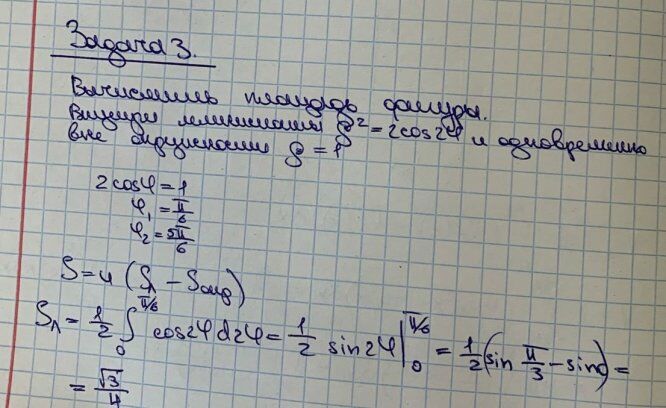 Задача 3.
Вычислить площадь фигуры.
Внутри лемнискаты ρ² = 2cos2φ и одновременно
вне окружности ρ = 1
2cosφ = 1
φ₁ = π/6
φ₂ = 5π/6
S = 4 (Sл − Sокр)
Sл = 1/2 ∫₀^(π/6) cos2φ d2φ = 1/2 sin2φ |₀^(π/6) = 1/2 (sin π/3 − sin0) =
= √3/4